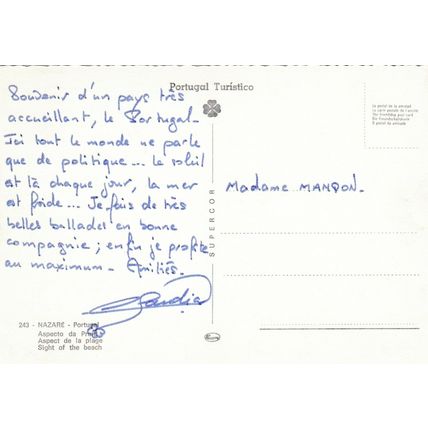 Portugal Turístico
Souvenir d'un pays très
accueillant, le Portugal-
Ici tout le monde ne parle
que de politique... le soleil
est là chaque jour, la mer
est froide... Je fais de très
belles ballades en bonne
compagnie ; enfin je profite
au maximum - Amitiés.
Madame MANDON.
SUPERCOR
243 - NAZARE - Portugal
Aspecto da Praia
Aspect de la plage
Sight of the beach